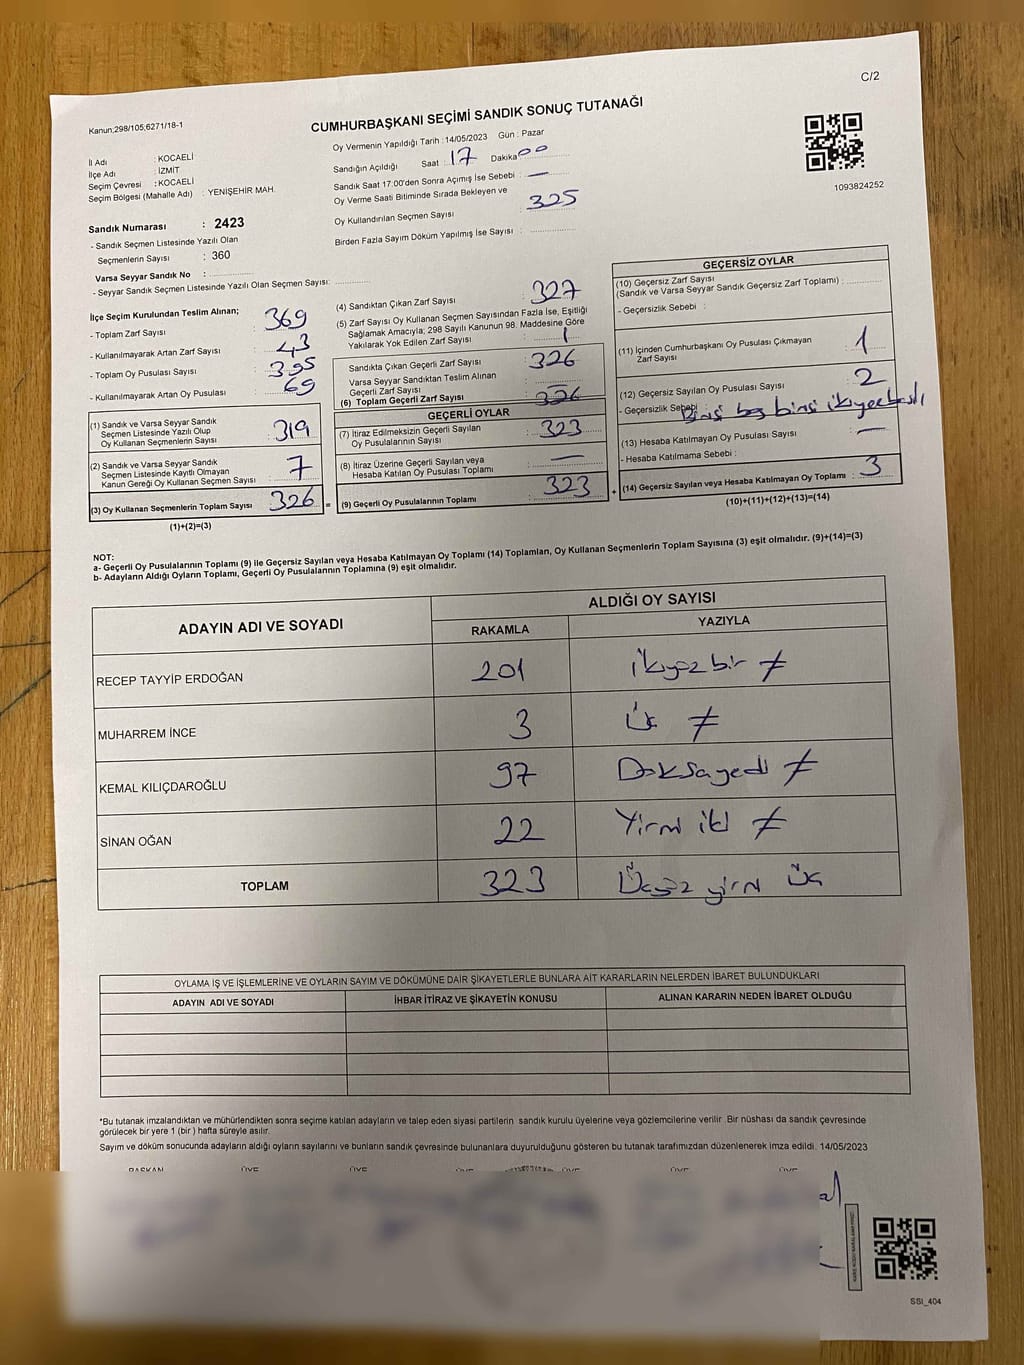 C/2
Kanun;298/105;6271/18-1
CUMHURBAŞKANI SEÇİMİ SANDIK SONUÇ TUTANAĞI
İl Adı : KOCAELİ
İlçe Adı : İZMİT
Seçim Çevresi : KOCAELİ
Seçim Bölgesi (Mahalle Adı) : YENİŞEHİR MAH.
Sandık Numarası : 2423
- Sandık Seçmen Listesinde Yazılı Olan
Seçmenlerin Sayısı : 360
Varsa Seyyar Sandık No :
- Seyyar Sandık Seçmen Listesinde Yazılı Olan Seçmen Sayısı:
Oy Vermenin Yapıldığı Tarih : 14/05/2023 Gün : Pazar
Sandığın Açıldığı Saat : 17 Dakika 00
Sandık Saat 17:00'den Sonra Açımış İse Sebebi : —
Oy Verme Saati Bitiminde Sırada Bekleyen ve
Oy Kullandırılan Seçmen Sayısı : 325
Birden Fazla Sayım Döküm Yapılmış İse Sayısı :
1093824252
İlçe Seçim Kurulundan Teslim Alınan;
- Toplam Zarf Sayısı : 369
- Kullanılmayarak Artan Zarf Sayısı : 43
- Toplam Oy Pusulası Sayısı : 395
- Kullanılmayarak Artan Oy Pusulası : 69
(1) Sandık ve Varsa Seyyar Sandık
Seçmen Listesinde Yazılı Olup
Oy Kullanan Seçmenlerin Sayısı : 319
(2) Sandık ve Varsa Seyyar Sandık
Seçmen Listesinde Kayıtlı Olmayan
Kanun Gereği Oy Kullanan Seçmen Sayısı : 7
(3) Oy Kullanan Seçmenlerin Toplam Sayısı : 326 =
(1)+(2)=(3)
(4) Sandıktan Çıkan Zarf Sayısı : 327
(5) Zarf Sayısı Oy Kullanan Seçmen Sayısından Fazla İse, Eşitliği
Sağlamak Amacıyla; 298 Sayılı Kanunun 98. Maddesine Göre
Yakılarak Yok Edilen Zarf Sayısı : 1
Sandıkta Çıkan Geçerli Zarf Sayısı : 326
Varsa Seyyar Sandıktan Teslim Alınan
Geçerli Zarf Sayısı : —
(6) Toplam Geçerli Zarf Sayısı : 326
GEÇERLİ OYLAR
(7) İtiraz Edilmeksizin Geçerli Sayılan
Oy Pusulalarının Sayısı : 323
(8) İtiraz Üzerine Geçerli Sayılan veya
Hesaba Katılan Oy Pusulası Toplamı : —
(9) Geçerli Oy Pusulalarının Toplamı : 323 +
GEÇERSİZ OYLAR
(10) Geçersiz Zarf Sayısı
(Sandık ve Varsa Seyyar Sandık Geçersiz Zarf Toplamı) :
- Geçersizlik Sebebi :
(11) İçinden Cumhurbaşkanı Oy Pusulası Çıkmayan
Zarf Sayısı : 1
(12) Geçersiz Sayılan Oy Pusulası Sayısı : 2
- Geçersizlik Sebebi : Birisi boş birisi iki yere baslı
(13) Hesaba Katılmayan Oy Pusulası Sayısı : —
- Hesaba Katılmama Sebebi :
(14) Geçersiz Sayılan veya Hesaba Katılmayan Oy Toplamı : 3
(10)+(11)+(12)+(13)=(14)
NOT:
a- Geçerli Oy Pusulalarının Toplamı (9) ile Geçersiz Sayılan veya Hesaba Katılmayan Oy Toplamı (14) Toplamları, Oy Kullanan Seçmenlerin Toplam Sayısına (3) eşit olmalıdır. (9)+(14)=(3)
b- Adayların Aldığı Oyların Toplamı, Geçerli Oy Pusulalarının Toplamına (9) eşit olmalıdır.
ADAYIN ADI VE SOYADI
ALDIĞI OY SAYISI
RAKAMLA YAZIYLA
RECEP TAYYİP ERDOĞAN 201 ikiyüz bir ≠
MUHARREM İNCE 3 Üç ≠
KEMAL KILIÇDAROĞLU 97 Doksayedi ≠
SİNAN OĞAN 22 Yirmi iki ≠
TOPLAM 323 Üçyüz yirmi üç
OYLAMA İŞ VE İŞLEMLERİNE VE OYLARIN SAYIM VE DÖKÜMÜNE DAİR ŞİKAYETLERLE BUNLARA AİT KARARLARIN NELERDEN İBARET BULUNDUKLARI
ADAYIN ADI VE SOYADI İHBAR İTİRAZ VE ŞİKAYETİN KONUSU ALINAN KARARIN NEDEN İBARET OLDUĞU
*Bu tutanak imzalandıktan ve mühürlendikten sonra seçime katılan adayların ve talep eden siyasi partilerin sandık kurulu üyelerine veya gözlemcilerine verilir. Bir nüshası da sandık çevresinde
görülecek bir yere 1 (bir) hafta süreyle asılır.
Sayım ve döküm sonucunda adayların aldığı oyların sayılarını ve bunların sandık çevresinde bulunanlara duyurulduğunu gösteren bu tutanak tarafımızdan düzenlenerek imza edildi. 14/05/2023
BAŞKAN ÜYE ÜYE ÜYE ÜYE ÜYE ÜYE
SSI_404